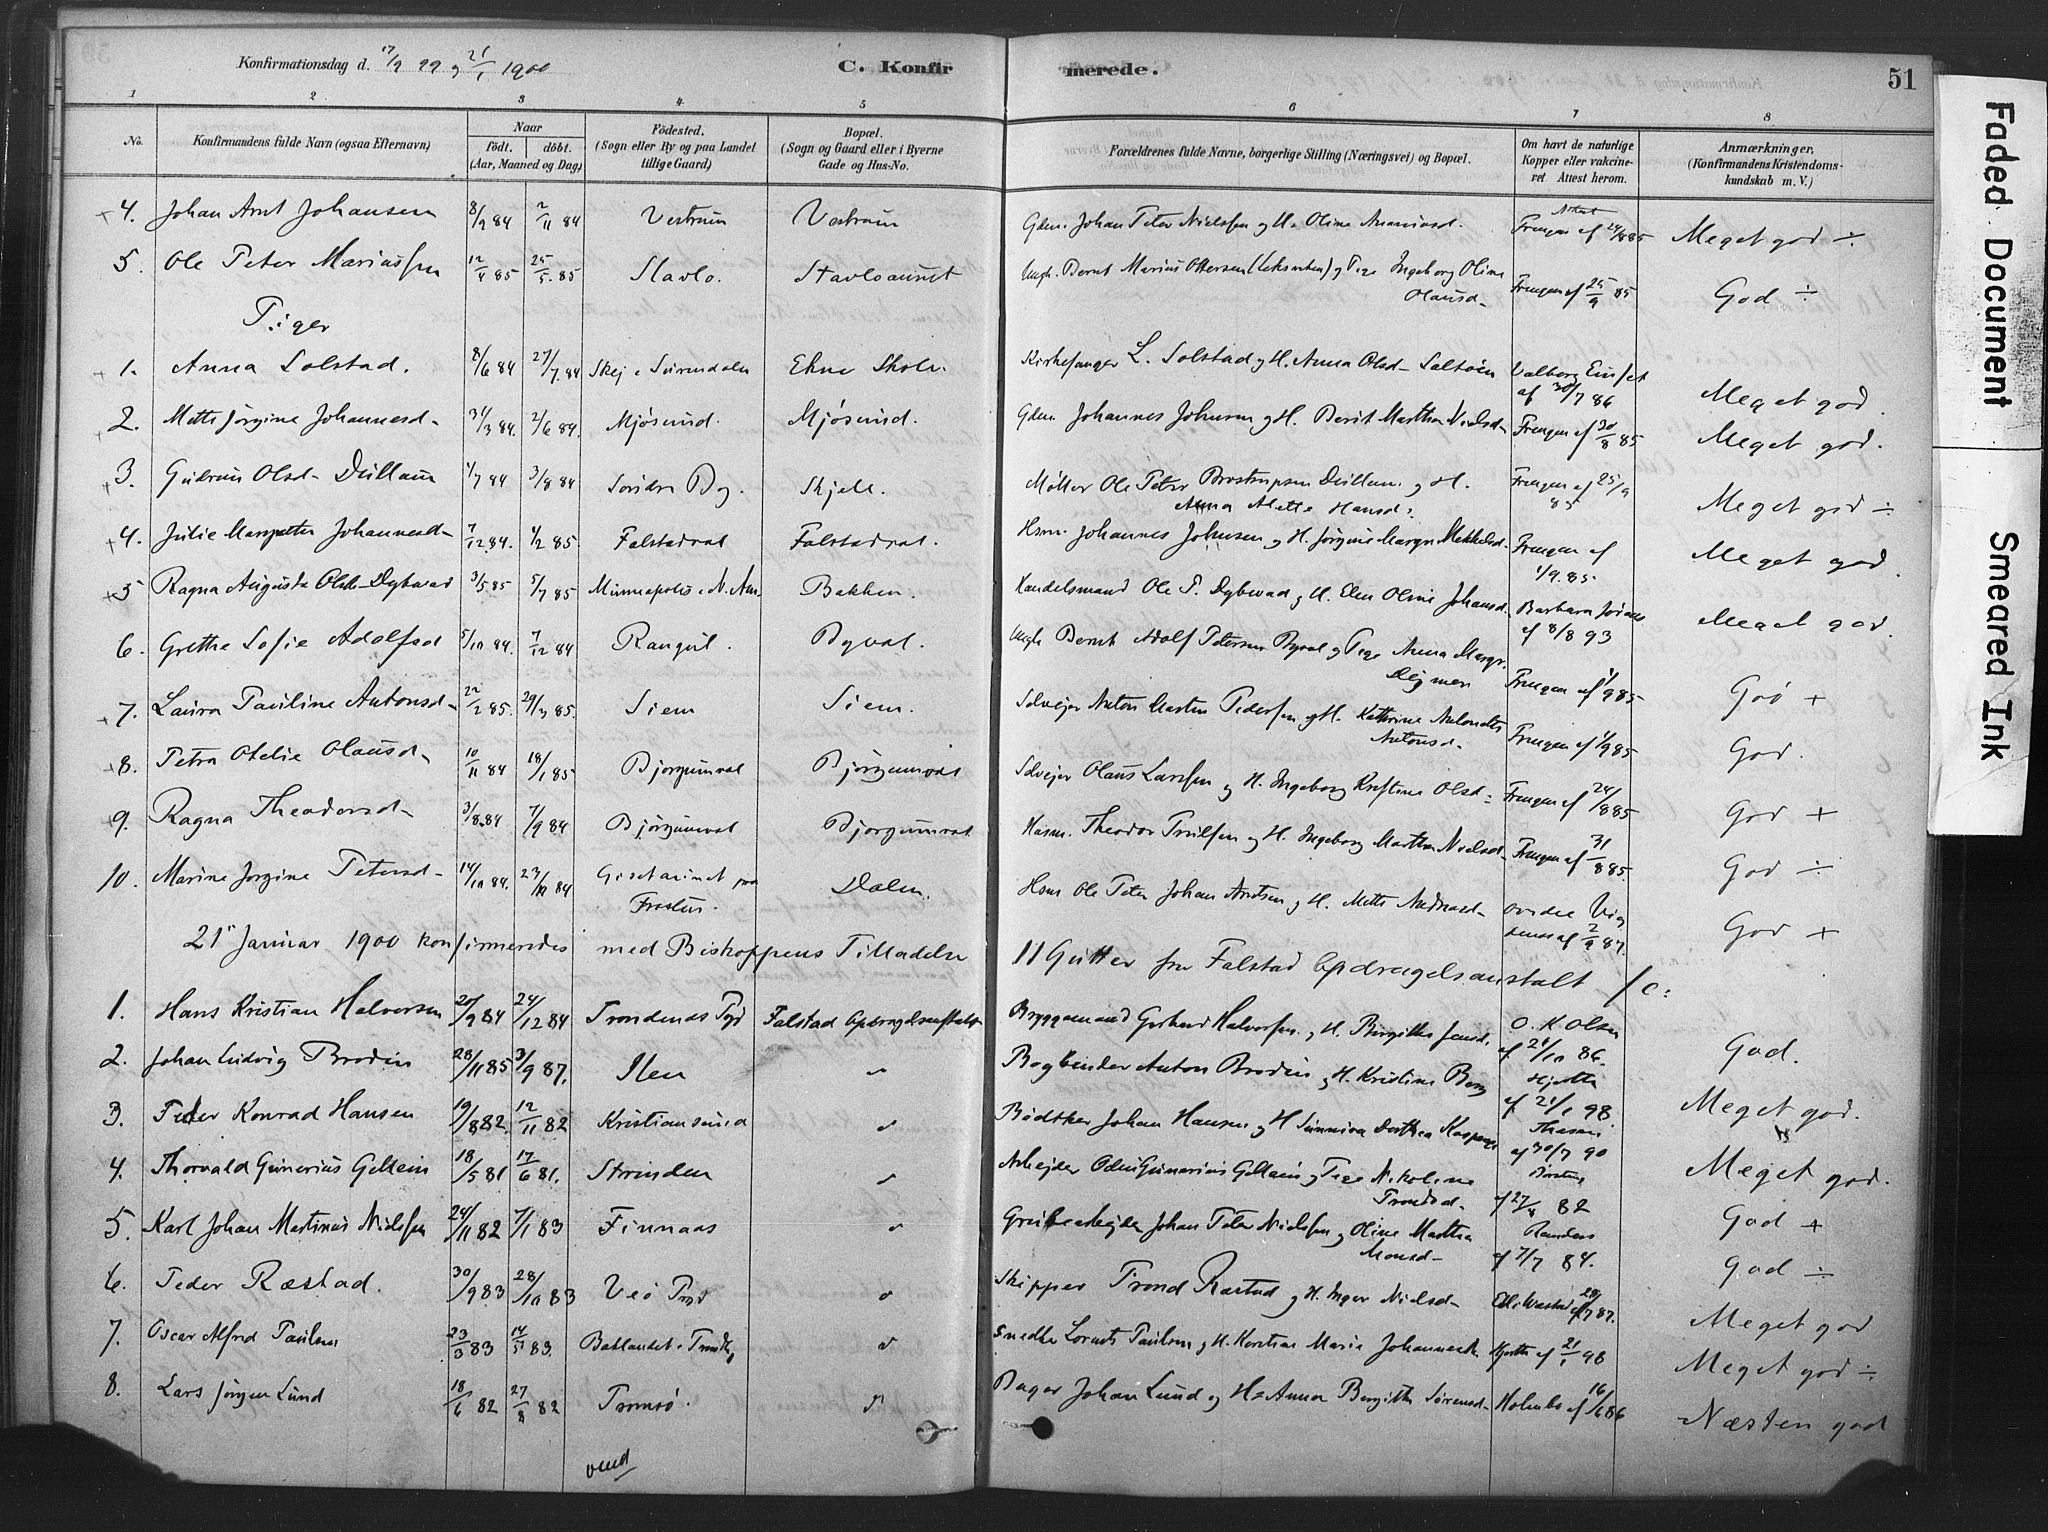 Konfirmationsdag d. 17/9 99 og 21/1 1900
C. Konfirmerede.
51
1 2 3 4 5 6 7 8
No.
Konfirmandens fulde Navn (ogsaa Efternavn)
Naar
födt. döbt.
(Aar, Maaned og Dag)
Födested.
(Sogn eller By og paa Landet
tillige Gaard)
Bopæl.
(Sogn og Gaard eller i Byerne
Gade og Hus-No.
Forældrenes fulde Navne, borgerlige Stilling (Næringsvei) og Bopæl.
Om havt de naturlige
Kopper eller vakcine-
ret. Attest herom.
Anmærkninger,
(Konfirmandens Kristendoms-
kundskab m. V.)
4. Johan Arnt Johansen 8/9 84 2/11 84 Vestrum Vestrum Gdm. Johan Peter Nielssen og H. Oline 24/8 85 Meget god ÷
5. Ole Peter Mariussen 12/4 85 25/5 85 Stavlo. Stavloaunet Ungk. Bernt Marius Ottersen og Pige Ingeborg Oline
Olausd. af 25/9 85 God ÷
Piger
1. Anna Solstad. 8/6 84 27/7 84 Skej i Surendalen Ekne Skole. Kirkesanger L. Solstad og H. Anna Olsd. Valborg
af 30/7 86 Meget god.
2. Mette Jørgine Johannesd. 31/3 84. 2/6 84. Mjösund. Mjösund. Gdm. Johannes Johnsen og H. Berit Martha Nielsd. af 20/8 85 Meget god.
3. Gudrun Olsd. Dullum 1/7 84 3/8 84 Søndre By. Skjele. Møller Ole Peter Dullum og H.
Anna Alette Hansd. af 25/9
85 Meget god ÷
4. Julie Margrethe Johannesd. 7/12 84. 1/2 85. Falstadval Falstadval. Hsm. Johannes Johnsen og H. Jørgine Margr. Mikkelsd. af
1/9. 85. Meget god.
5 Ragna Augusta Olsd. Dybwad 3/5 85 5/7 85 Minneapolis i N. Am. Bakken. Handelsmand Ole P. Dybwad og H. Elen Oline Johansd. Barbara
af 8/8 93 Meget god.
6. Grethe Sofie Adolfsd 5/10 84. 7/12 84 Byval. Ungk. Bernt Adolf Petersen Byval og Pige Anna Margr.
af 1/9 85 God +
7. Laura Pauline Antonsd. 22/2 85. 29/3 85. Siem Siem. Selvejer Anton Martin Pedersen og H. Kathrine
Antonsd. af 1/9 85 God.
8. Petra Otelie Olausd. 10/11 84 18/1 85. Bjørgumval Bjørgumval Selvejer Olaus Larssen og H. Ingeborg Kristine Olsd. af 24/8 85 God +
9. Ragna Theodorsd. 3/8 84 7/9 84 Bjørgumval Bjørgumval Husm. Theodor Trulssen og H. Ingeborg Martha Nielsd. af 31/8 85. God ÷
10. Marine Jørgine Petersd. 14/10 84. 23/11 84 paa
Frosten. Dalen. Hsm Ole Peter Johan Arntsen og H. Mette
af 2/9 87. God +
21' Januar 1900 konfirmeredes med Biskoppens Tilladelse 11 Gutter fra Falstad Opdragelsesanstalt
1. Hans Kristian Halvorsen 20/9 84 24/12 84 Trondenes Falstad Opdragelsesanstalt Bryggemand Gerhard Halvorsen og H. Birgitte Jensd. O. K. Olsen
af 21/10 86. God.
2. Johan Ludvig Brodin 28/11 85 3/9 87. Ilen " Bogbinder Anton Brodin og H. Kristine Berg Hjorth
af 21/1 98. Meget god.
3. Peder Konrad Hansen 19/8 82. 12/11 82 Kristiansund " Bødtker Johan Hansen og H Sunniva Dorthea
af 30/7 90 Meget god.
4. Thorvald Gunerius Gellein 18/5 81 17/6 81. Strinden " Arbejder Odin Gunarius Gellein og Pige Nikoline
Trondsd. af 27/8 82 God +
5. Karl Johan Martinus Nielssen 24/11 82 7/1 83 Finnaas " Grubearbejder Johan Peter Nielssen og Oline Martha
Monsd. af 7/7 84. God ÷
6. Peder Ræstad. 30/9 83 28/10 83 Veö " Skipper Trond Ræstad og H. Inger Nielsd. 87. Meget god
7. Oscar Alfred Paulsen 23/3 83 14/5 83. Baklandet i " Snedker Lorents Paulsen og H. Kerstine Marie Johannesd. Hjorth af 21/1 98 Meget god ÷
8. Lars Jørgen Lund 18/6 82 27/8 82 Tromsø. " Bager Johan Lund og H. Anna Birgitte Sörensd. Holmbo af 16/6 86 Næsten god
vend
Faded Document
Smeared Ink